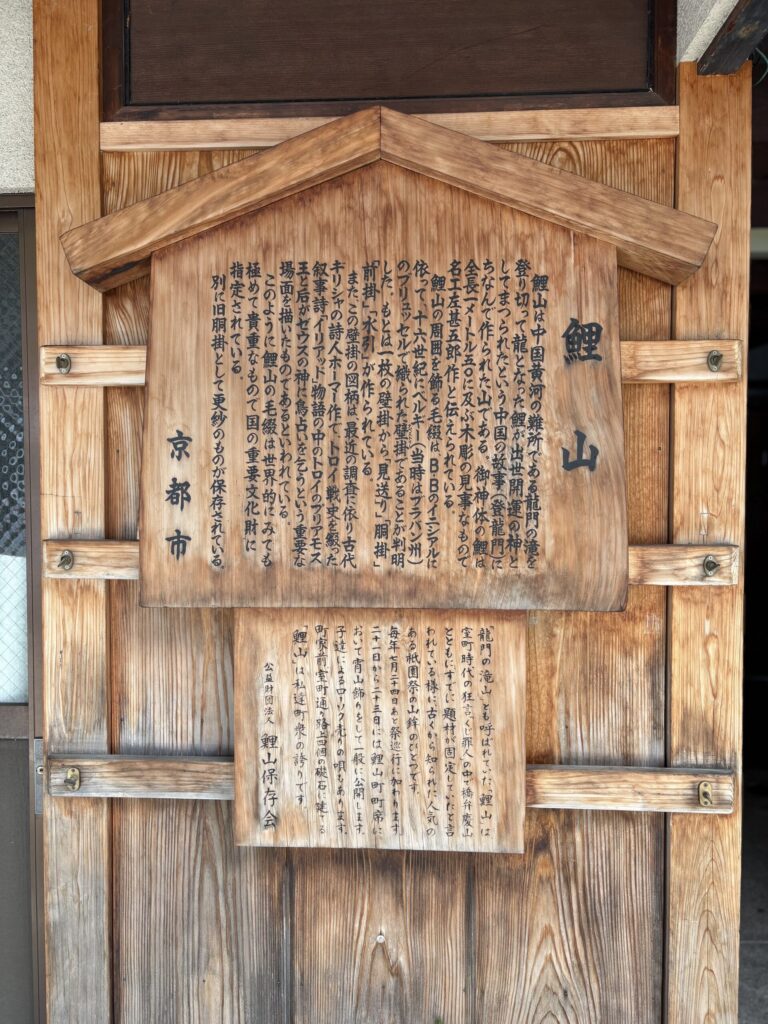 鯉山
鯉山は中国黄河の難所である龍門の滝を
登り切って龍となった鯉が出世開運の神と
してまつられたという中国の故事(登龍門)に
ちなんで作られた山である。御神体の鯉は
全長一メートル五〇に及ぶ木彫の見事なもので
名工左甚五郎作と伝えられている。
鯉山の周囲を飾る毛綴は、B・Bのイニシアルに
依って、十六世紀にベルギー(当時はブラバン州)
のブリュッセルで綿られた壁掛であることが判明
した。もとは一枚の壁掛から「見送り」「胴掛」
「前掛」「水引」が作られている。
またこの壁掛の図柄は、最近の調査に依り古代
ギリシャの詩人ホーマー作で、トロイ戦史を綴った
叙事詩「イリアッド」物語の中のトロイのプリアモス
王と后がゼウスの神に鳥占いを乞うという重要な
場面を描いたものであるといわれている。
このように鯉山の毛綴は世界的にみても
極めて貴重なもので国の重要文化財に
指定されている。
別に旧胴掛として更紗のものが保存されている。
京都市
「龍門の滝山」とも呼ばれていた「鯉山」は
室町時代の狂言、くじ罪人の中で橋弁慶山
とともにすでに題材が固定していたと言
われている様に古くから知られた人気の
ある祇園祭の山鉾のひとつです。
毎年七月二十四日あと祭巡行に加わります。
二十一日から二十三日には鯉山町町席に
おいて宵山飾りをして一般に公開します。
子達によるローソク売りの唄もあります。
町家前室町通り路上四個の礎石に建てる
「鯉山」は私達町衆の誇りです。
公益財団法人 鯉山保存会